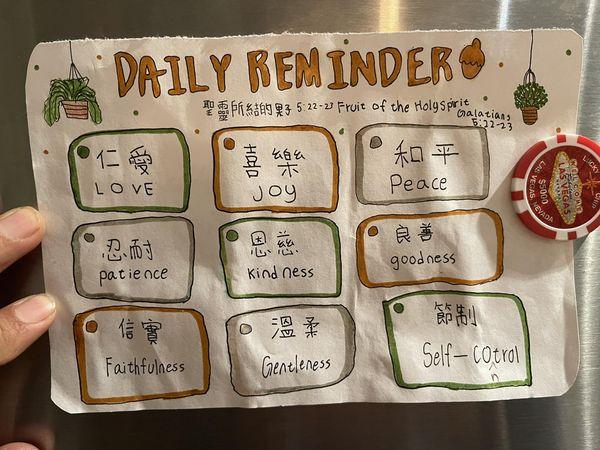 DAILY REMINDER
聖靈所結的果子 5:22-23 Fruit of the Holy Spirit
Galatians
5:22-23
仁愛
LOVE
喜樂
JOY
和平
Peace
忍耐
patience
恩慈
kindness
良善
goodness
信實
Faithfulness
溫柔
Gentleness
節制
Self-Cotrol
n
WELCOME
LAS VEGAS
LAS VEGAS, NEVADA